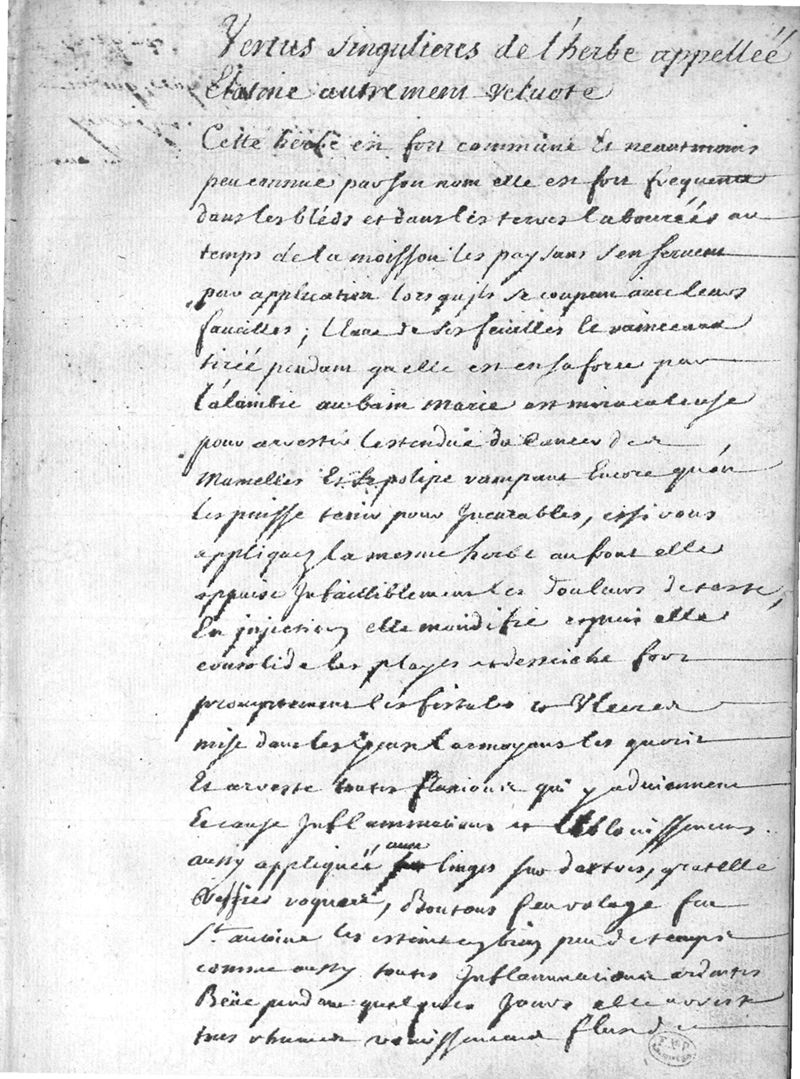 Vertus singulieres de l'herbe appelleé
Elatine autrement veluote
Cette herbe est fort commune Et neantmoins
peu connue par son nom elle est fort frequente
dans les bleds et dans les terres laboureés au
temps de la moisson les paysans s'en servent
par application lorsquils se coupent avec leurs
faucilles; l'eau de ses feuilles
tireé pendant quelle est en sa force par
l'alambic au bain marie est miraculeuse
pour arrester lestendue du Cancer des
Mamelles Et le polipe rampant Encore qu'on
les puisse tenir pour Incurables, et si vous
appliquez la mesme herbe au front elle
appaise Infailliblement les douleurs de teste,
En injection elle mondifie et puis elle
consolide les playes et desseiche fort
promptement les fistules et Ulceres
mise dans les yeux larmoyans les guerit
Et arreste toutes fluxions qui y adviennent
Et cause Inflammations et Eblouissemens
aussy appliqueé avec linges sur dartres, gratelle
rogneux, Boutons feu volage feu
St. antoine les esteint en bien peu de temps
comme aussy toutes Inflammations ardentes
Beüe pendant quelques Jours elle arreste
tous rhumes vomissemens flux de